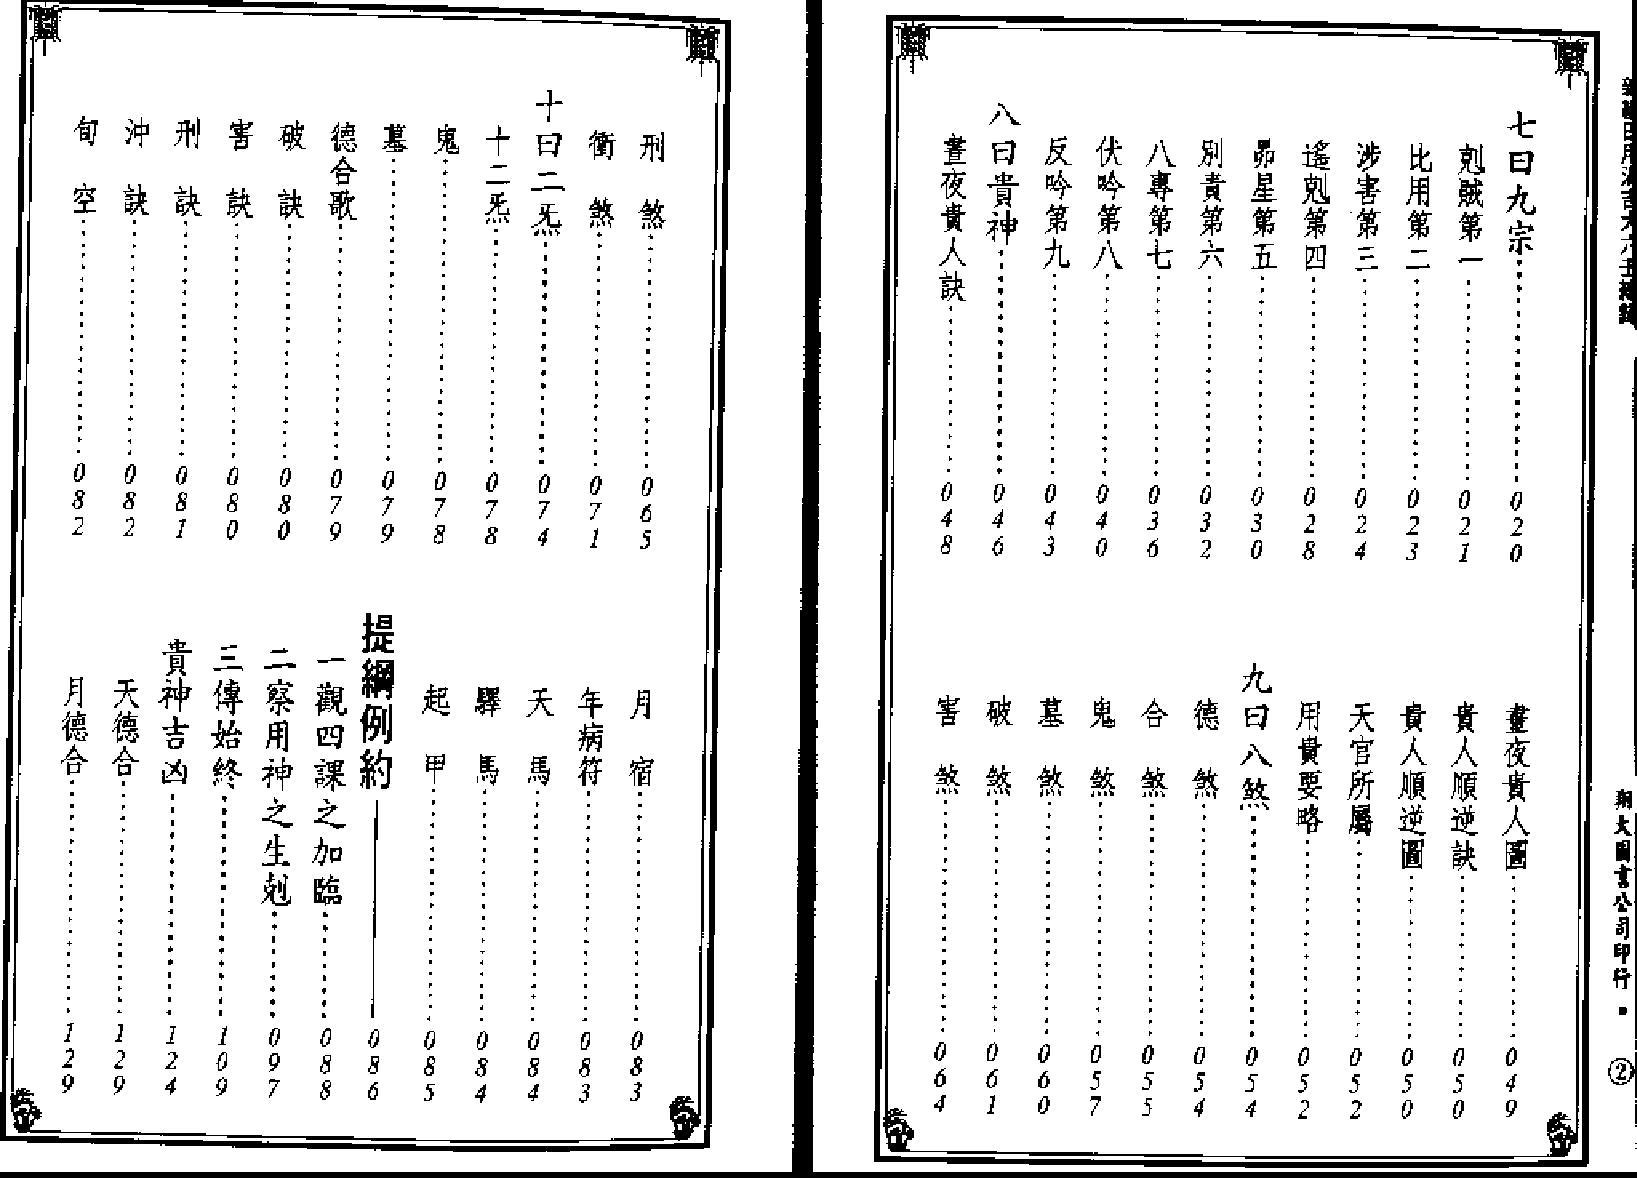 七曰九宗……020
剋賊第一……021
比用第二……023
涉害第三……024
遙剋第四……028
昴星第五……030
別責第六……032
八專第七……036
伏吟第八……040
反吟第九……043
八曰貴神……046
晝夜貴人訣……048
晝夜貴人圖……049
貴人順逆訣……050
貴人順逆圖……050
天官所屬……052
用貴要略……052
九曰八煞……054
德煞……054
合煞……055
鬼煞……057
墓煞……060
破煞……061
害煞……064
翔大圖書公司印行 ・ ②
刑煞……065
衝煞……071
十曰二炁……074
十二炁……078
鬼……078
墓……079
德合歌……079
破訣……080
害訣……080
刑訣……081
沖訣……082
旬空……082
月宿……083
年病符……083
天馬……084
驛馬……084
起甲……085
提綱例約——086
一觀四課之加臨……088
二察用神之生剋……097
三傳始終……109
貴神吉凶……124
天德合……129
月德合……129